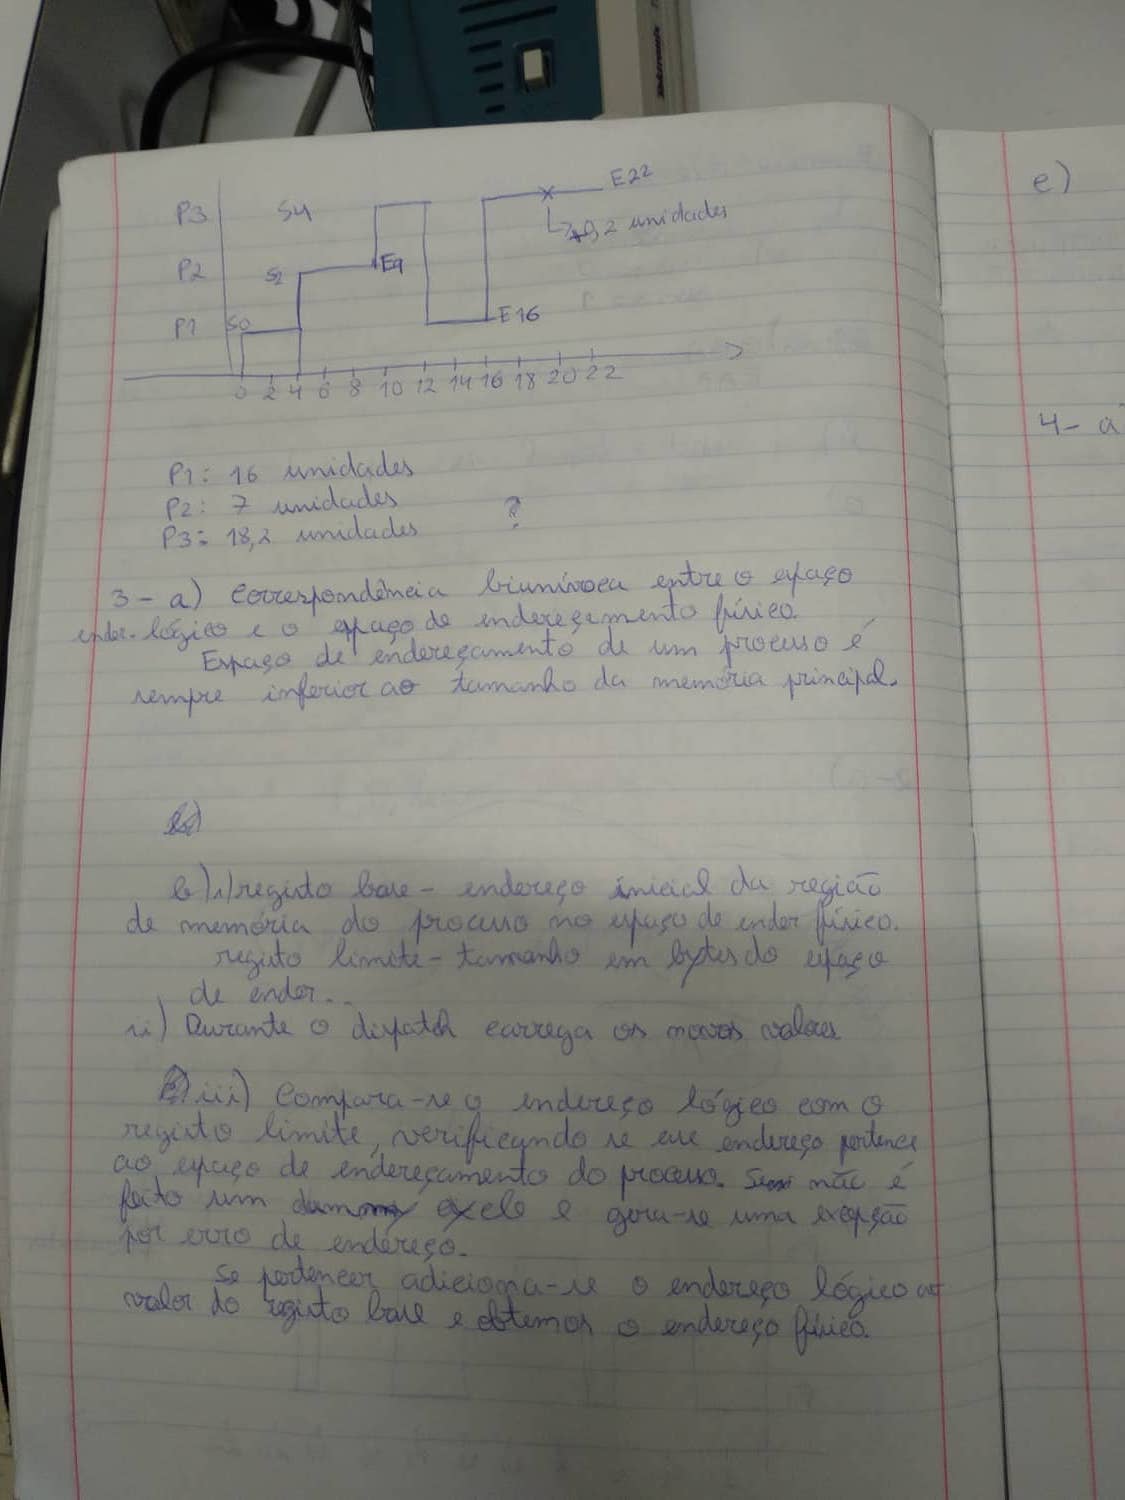 P3 S4 E22
↳ +0,2 unidades
P2 S2 E9
P1 S0 E16
0 2 4 6 8 10 12 14 16 18 20 22
P1: 16 unidades
P2: 7 unidades
P3: 18,2 unidades ?
3- a) Correspondência biunívoca entre o espaço
ender. lógico e o espaço de endereçamento físico.
Espaço de endereçamento de um processo é
sempre inferior ao tamanho da memória principal.
b) i) registo base - endereço inicial da região
de memória do processo no espaço de ender físico.
registo limite - tamanho em bytes do espaço
de ender..
ii) Durante o dispatch carrega os novos valores
iii) Compara-se o endereço lógico com o
registo limite, verificando se esse endereço pertence
ao espaço de endereçamento do processo. não é
feito um dummy e gera-se uma exepção
por erro de endereço.
Se pertencer adiciona-se o endereço lógico ao
valor do registo base e obtemos o endereço físico.
e)
4- a